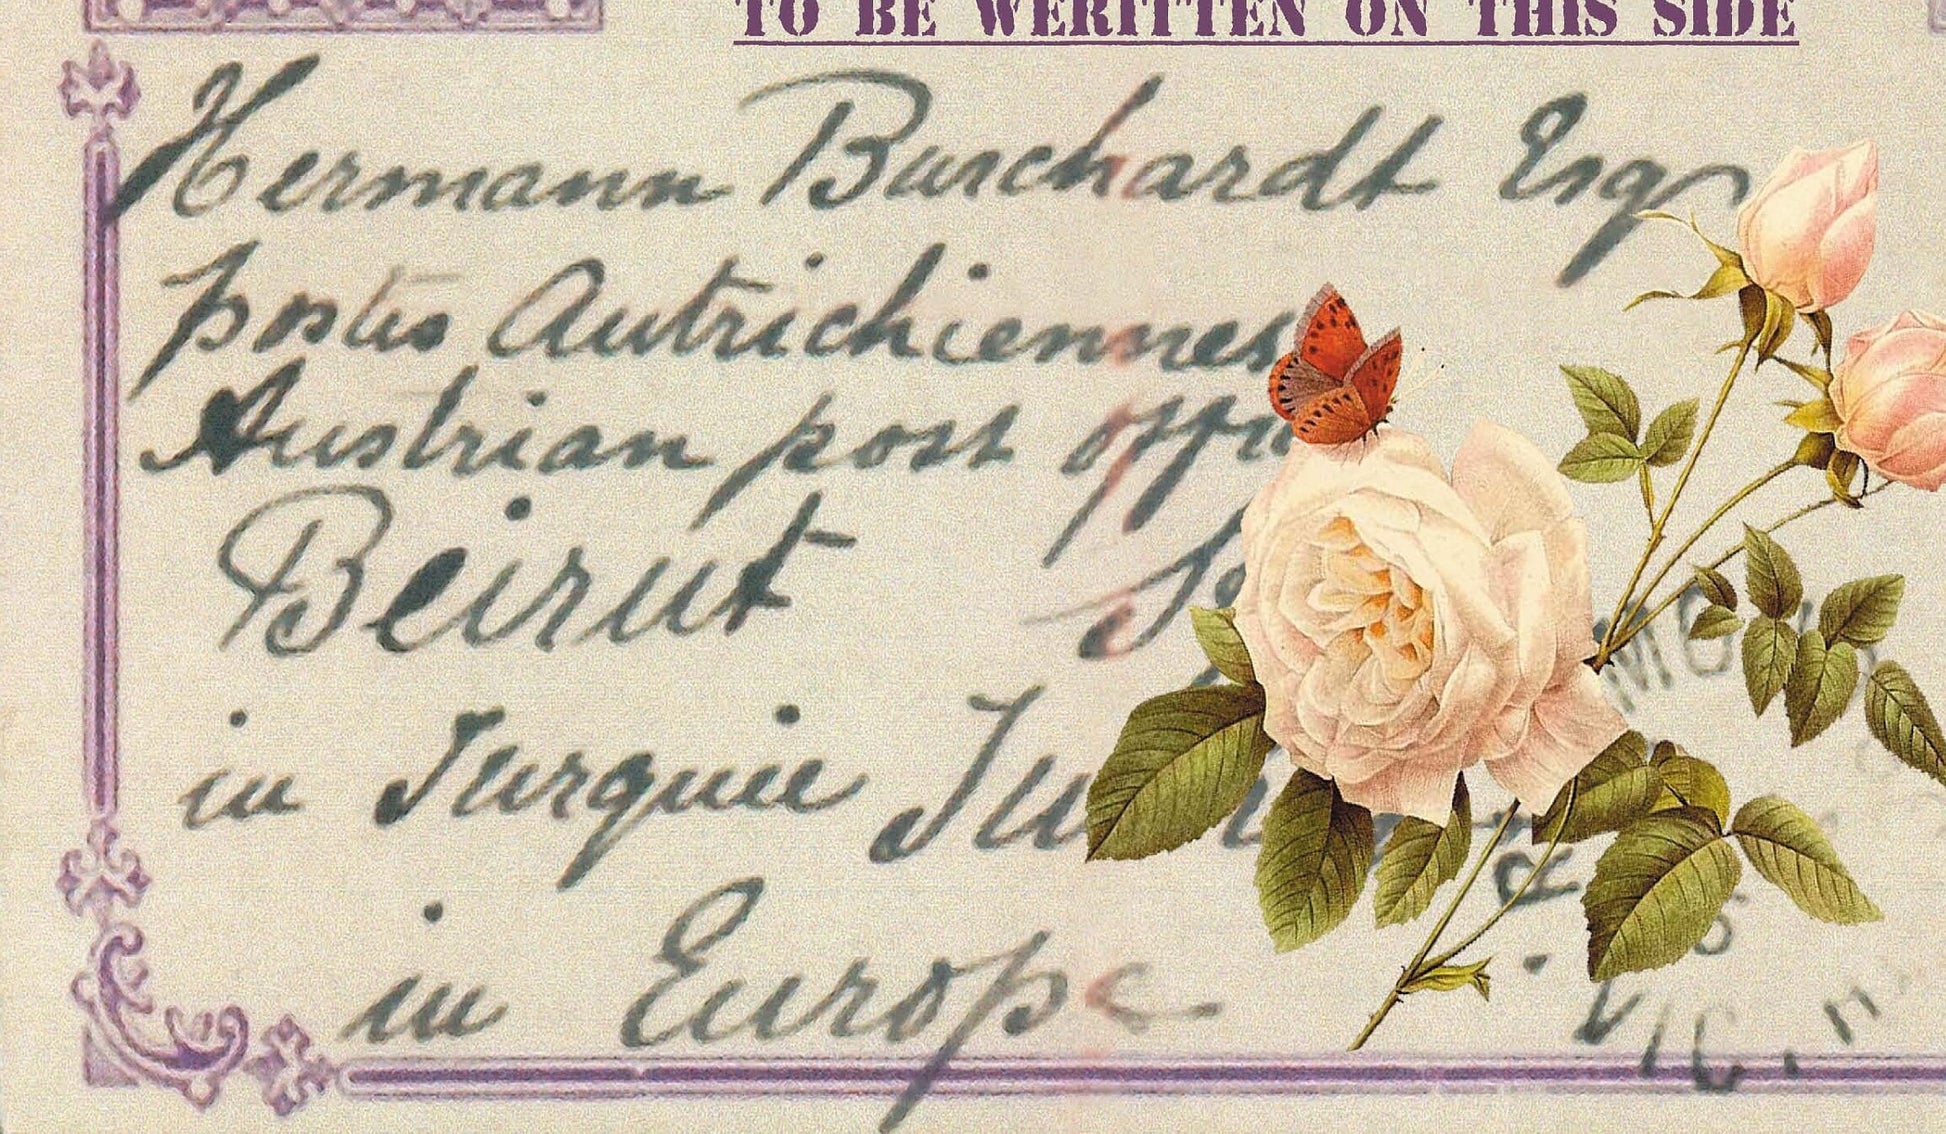 TO BE WERITTEN ON THIS SIDE
Hermann Burchardt Esq
postes Autrichiennes
Austrian post
Beirut
in Turquie
in Europe